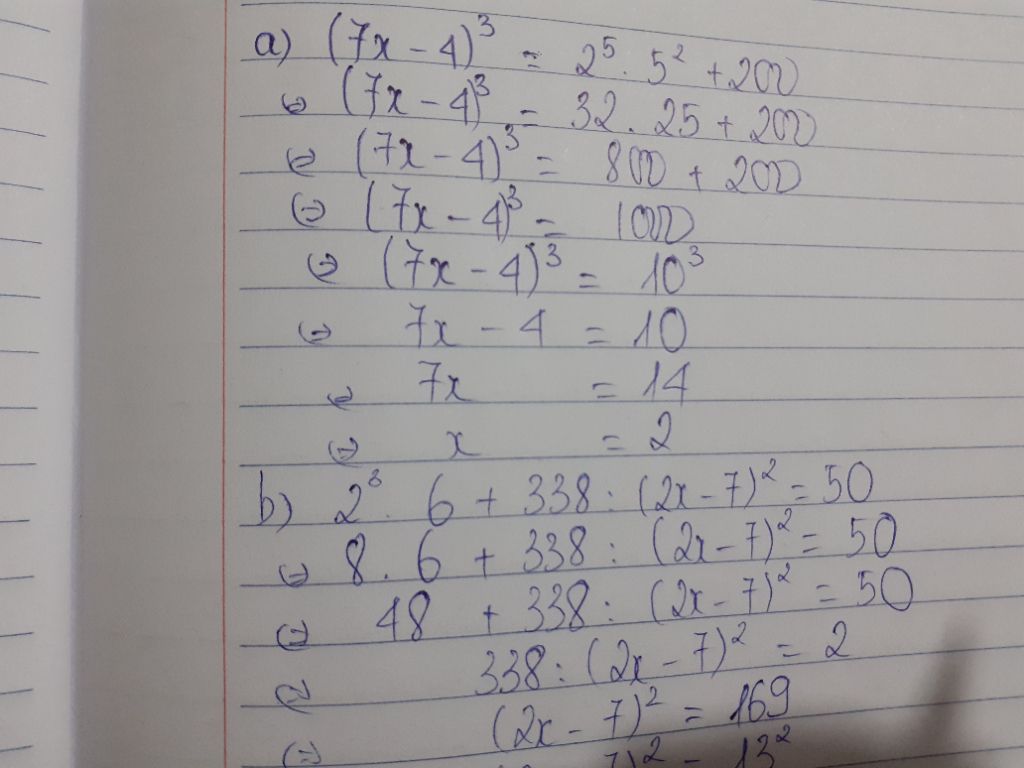 a) (7x - 4)³ = 2⁵ . 5² + 200
⇔ (7x - 4)³ = 32 . 25 + 200
⇔ (7x - 4)³ = 800 + 200
⇔ (7x - 4)³ = 1000
⇔ (7x - 4)³ = 10³
⇔ 7x - 4 = 10
⇔ 7x = 14
⇔ x = 2
b) 2³ . 6 + 338 : (2x - 7)² = 50
⇔ 8 . 6 + 338 : (2x - 7)² = 50
⇔ 48 + 338 : (2x - 7)² = 50
⇔ 338 : (2x - 7)² = 2
(2x - 7)² = 169
⇔ 7)² = 13²